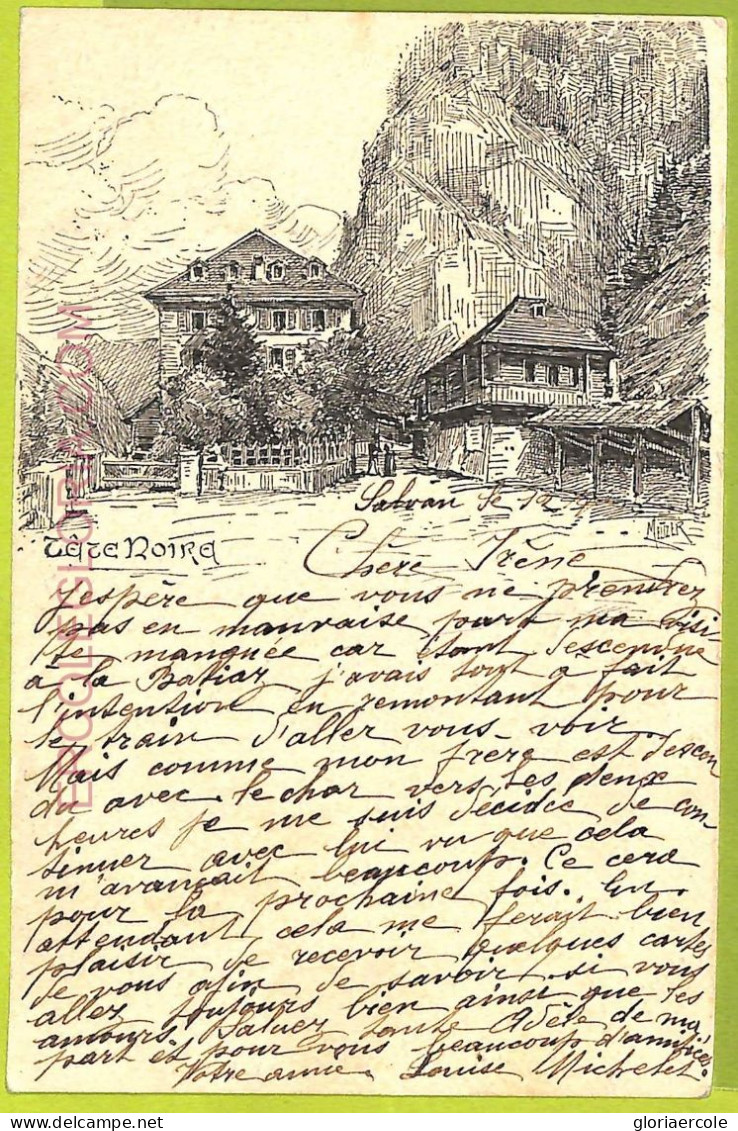 Salvan le 12
METZGER
TÊTE NOIRE
Chère Irène
J'espère que vous ne prendrez
pas en mauvaise part ma visi-
te manquée car étant descendue
à la Batiaz j'avais tout à fait
l'intention en remontant pour
le train d'aller vous voir.
Mais comme mon frère est descen
du avec le char vers les deux
heures je me suis décidée de con
tinuer avec lui vu que cela
m'avançait beaucoup. Ce cera
pour la prochaine fois. En
attendant cela me ferait bien
plaisir de recevoir quelques cartes
de vous afin de savoir si vous
allez toujours bien ainsi que les
amours. Saluez tante Adèle de ma
part et pour vous beaucoup d'amitiés.
Votre amie Louise Michelet.
ERCOLEGLORIA.COM
gloriaercole